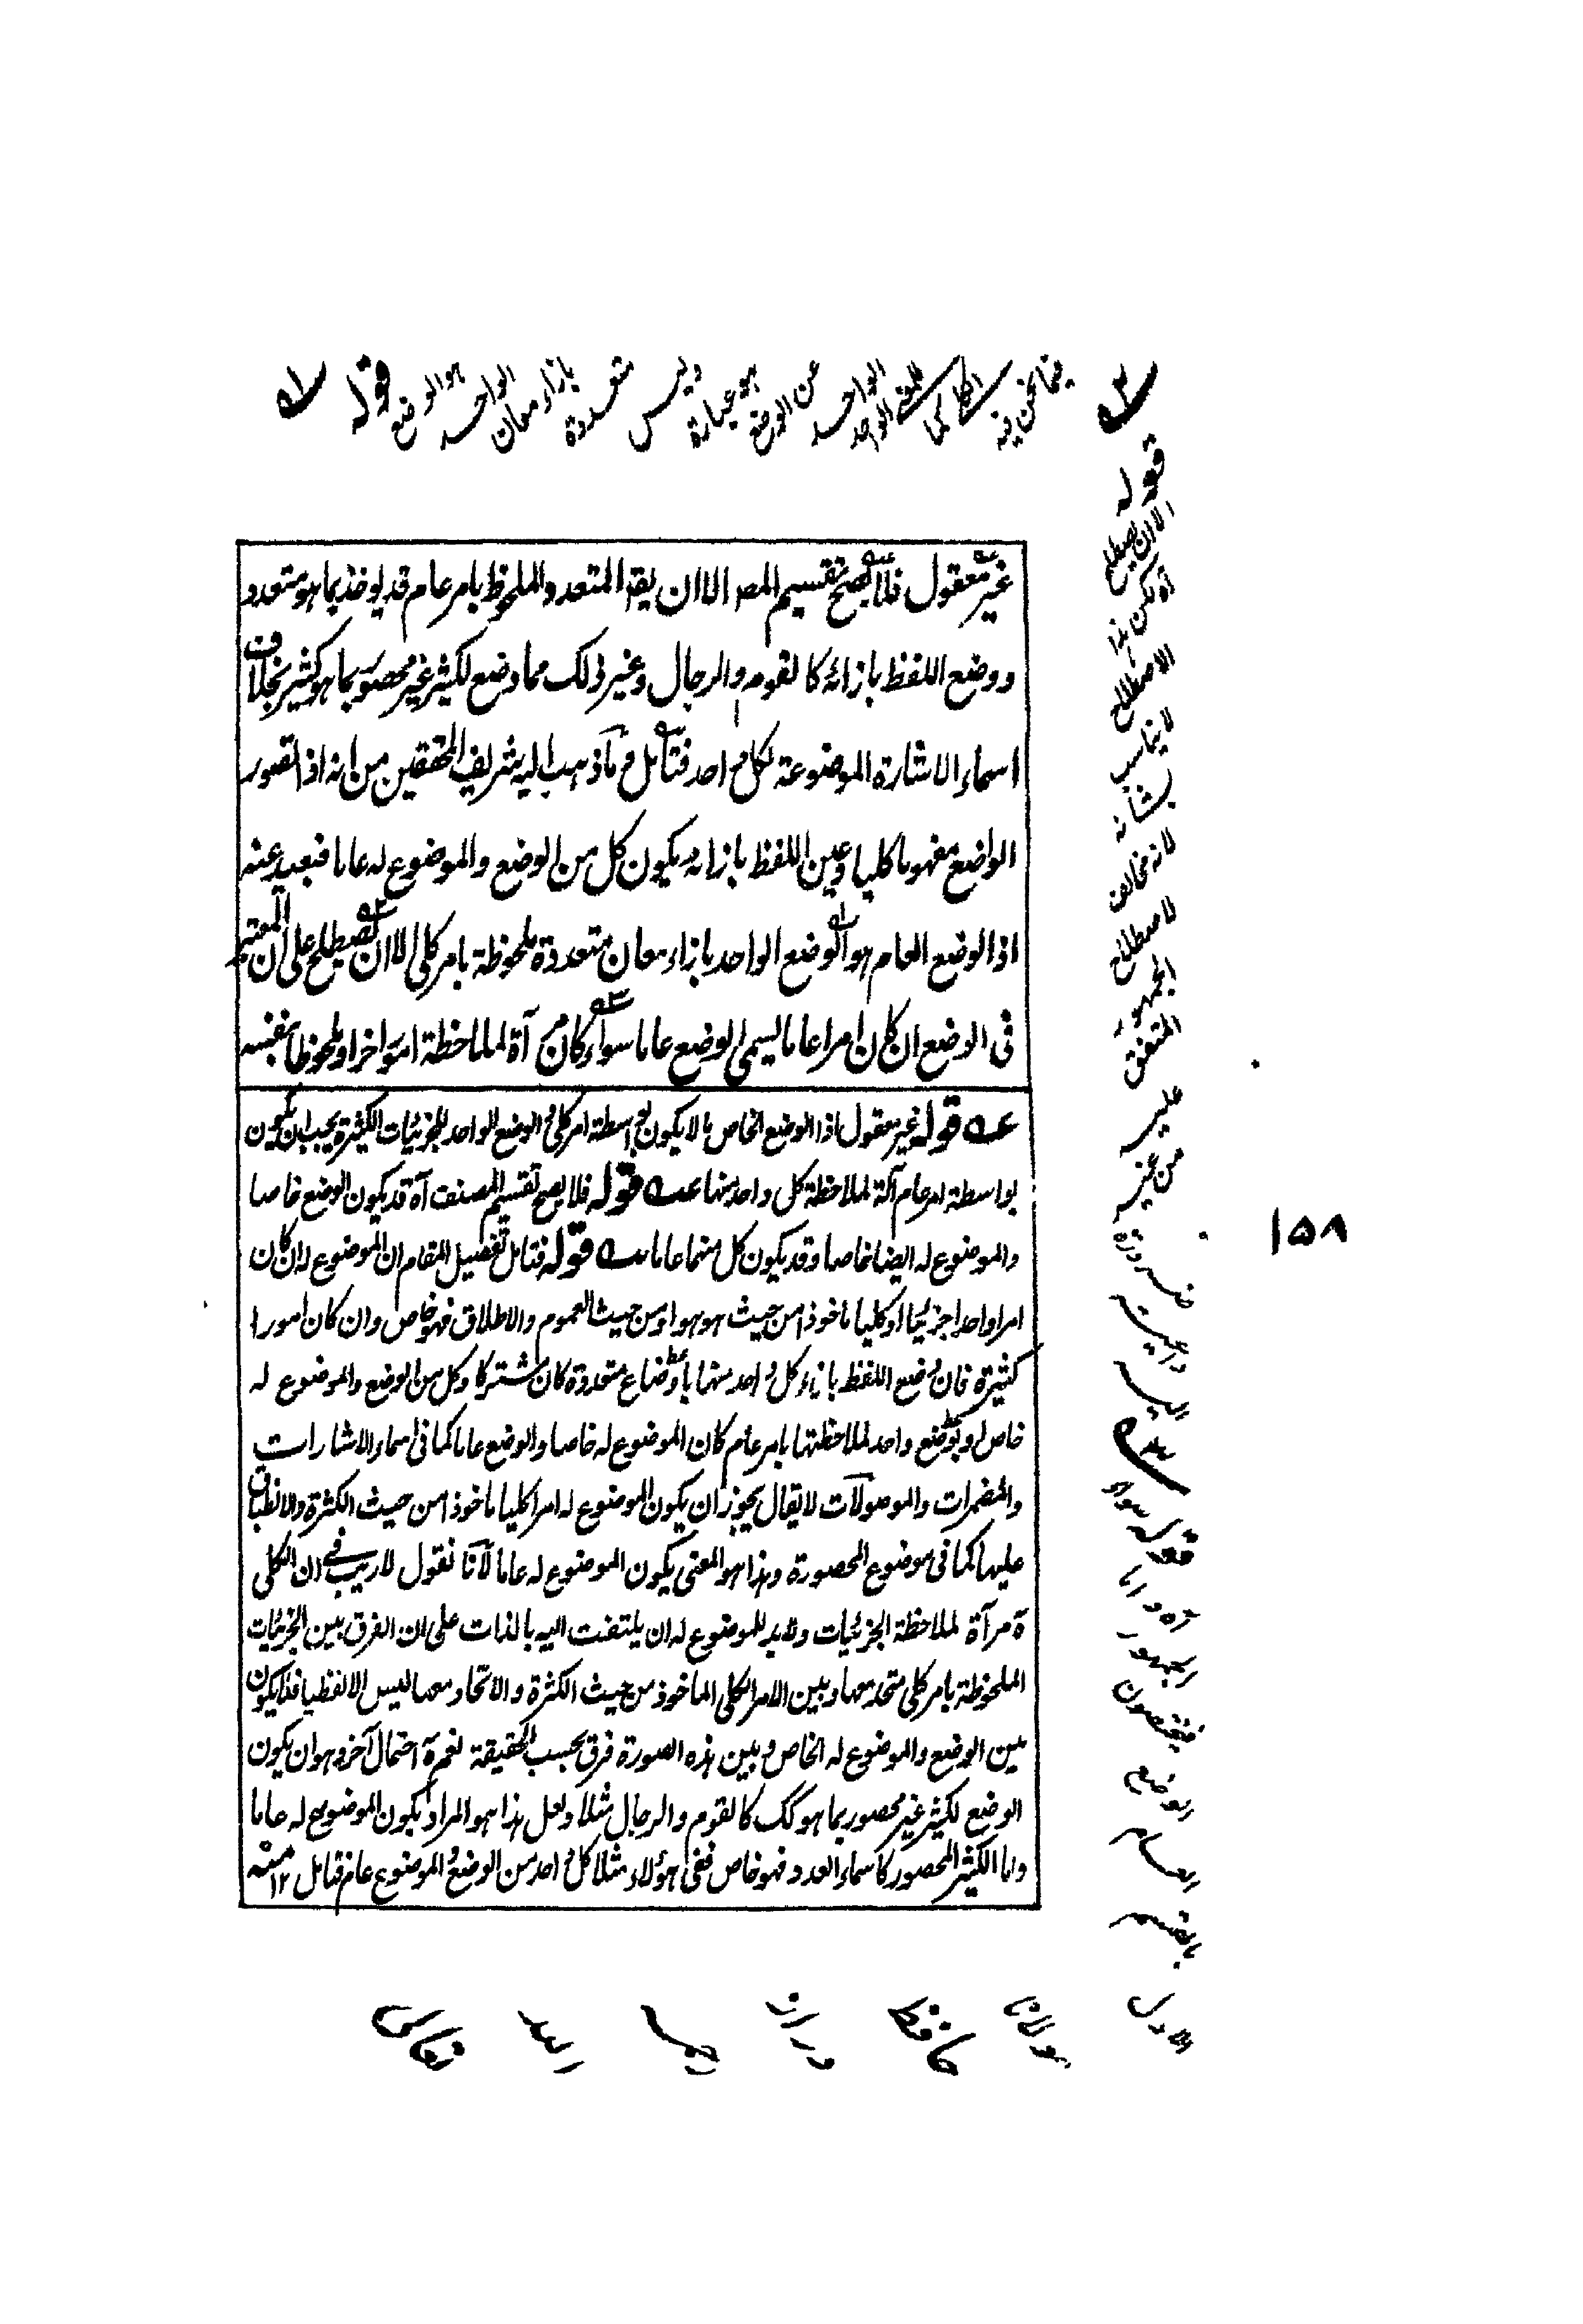 له قوله
هو الوضع
الواحد
بازاء معان
متعددة
وليس
هو عبارة
عن الوضع
الواحد
للفظ الواحد
كما
فيما نحن فيه
٣ه
قوله
الا ان يصطلح
آه لكن هذا
الاصطلاح
لا يناسب
بشانه
لانه مخالف
لاصطلاح
الجمهور
المتفق
عليه
من غير
ضرورة
داعية
اليه
قوله سواء
آه واما
الجمهور
فيخصصون
الوضع
العام
بالقسم
الاول
مولانا
غير معقول فلا يصح تقسيم المص الا ان يقال المتعدد الملحوظ بامر عام قد يوخذ بما هو متعدد
ووضع اللفظ بازائه كالقوم والرجال وغير ذلك مما وضع لكثير غير محصور بما هو كثير بخلاف
اسماء الاشارة الموضوعة لكل واحد فتامل وما ذهب اليه شريف المحققين من انه اذا تصور
الواضع مفهوما كليا وعين اللفظ بازائه يكون كل من الوضع والموضوع له عاما فبعيد عنه
اذ الوضع العام هو الوضع الواحد بازاء معان متعددة ملحوظة بامر كلي الا ان يصطلح على ان المعتبر
في الوضع ان كان امرا عاما يسمى الوضع عاما سواء كان مرآة لملاحظة امور اخر او ملحوظا بنفسه
عه قوله غير معقول اذ الوضع الخاص ما لا يكون بواسطة امر كلي والوضع الواحد للجزئيات الكثيرة يجب ان يكون
بواسطة امر عام آلة لملاحظة كل واحد منها عه قوله فلا يصح تقسيم المصنف آه قد يكون الوضع خاصا
والموضوع له ايضا خاصا وقد يكون كل منهما عاما سه قوله فتامل تفصيل المقام ان الموضوع له ان كان
امرا واحدا جزئيا او كليا ماخوذا من حيث هو هو او من حيث العموم والاطلاق فهو خاص وان كان امورا
كثيرة فان وضع اللفظ بازاء كل واحد منها باوضاع متعددة كان مشتركا وكل من الوضع والموضوع له
خاص او بوضع واحد لملاحظتها بامر عام كان الموضوع له خاصا والوضع عاما كما في اسماء الاشارات
والمضمرات والموصولات لا يقال يجوز ان يكون الموضوع له امرا كليا ماخوذا من حيث الكثرة والانطباق
عليها كما في موضوع المحصورة وبهذا هو المعنى يكون الموضوع له عاما لانا نقول لا ريب في ان الكلي
ة مرآة لملاحظة الجزئيات ولابد للموضوع له ان يلتفت اليه بالذات على ان الفرق بين الجزئيات
الملحوظة بامر كلي متحد معها وبين الامر الكلي الماخوذ من حيث الكثرة والاتحاد معها ليس الا لفظيا فلا يكون
بين الوضع والموضوع له الخاص وبين هذه الصورة فرق بحسب الحقيقة نعم ثمة احتمال آخر وهو ان يكون
الوضع لكثير غير محصور بما هو كك كالقوم والرجال مثلا ولعل هذا هو المراد بكون الموضوع له عاما
واما الكثير المحصور كاسماء العدد فهو خاص ففي هؤلاء مثلا كل واحد من الوضع والموضوع عام فتامل ١٢ منه
١٥٨